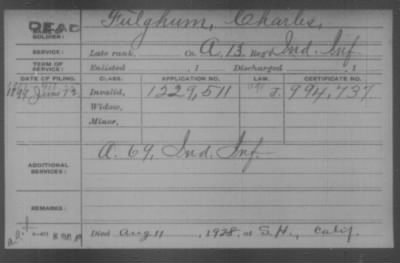 DEAD
SOLDIER: Fulghum, Charles,
SERVICE: Late rank, Co. A, 13 Reg't Ind. Inf.
TERM OF SERVICE: Enlisted , 1 Discharged , 1
DATE OF FILING. CLASS. APPLICATION NO. LAW. CERTIFICATE NO.
1899 June 12 Invalid, 1229,511 J. 994,737
Widow,
Minor,
ADDITIONAL SERVICES: A. 69, Ind. Inf.
REMARKS:
Died Aug. 11, 1928, at S.H., Calif.